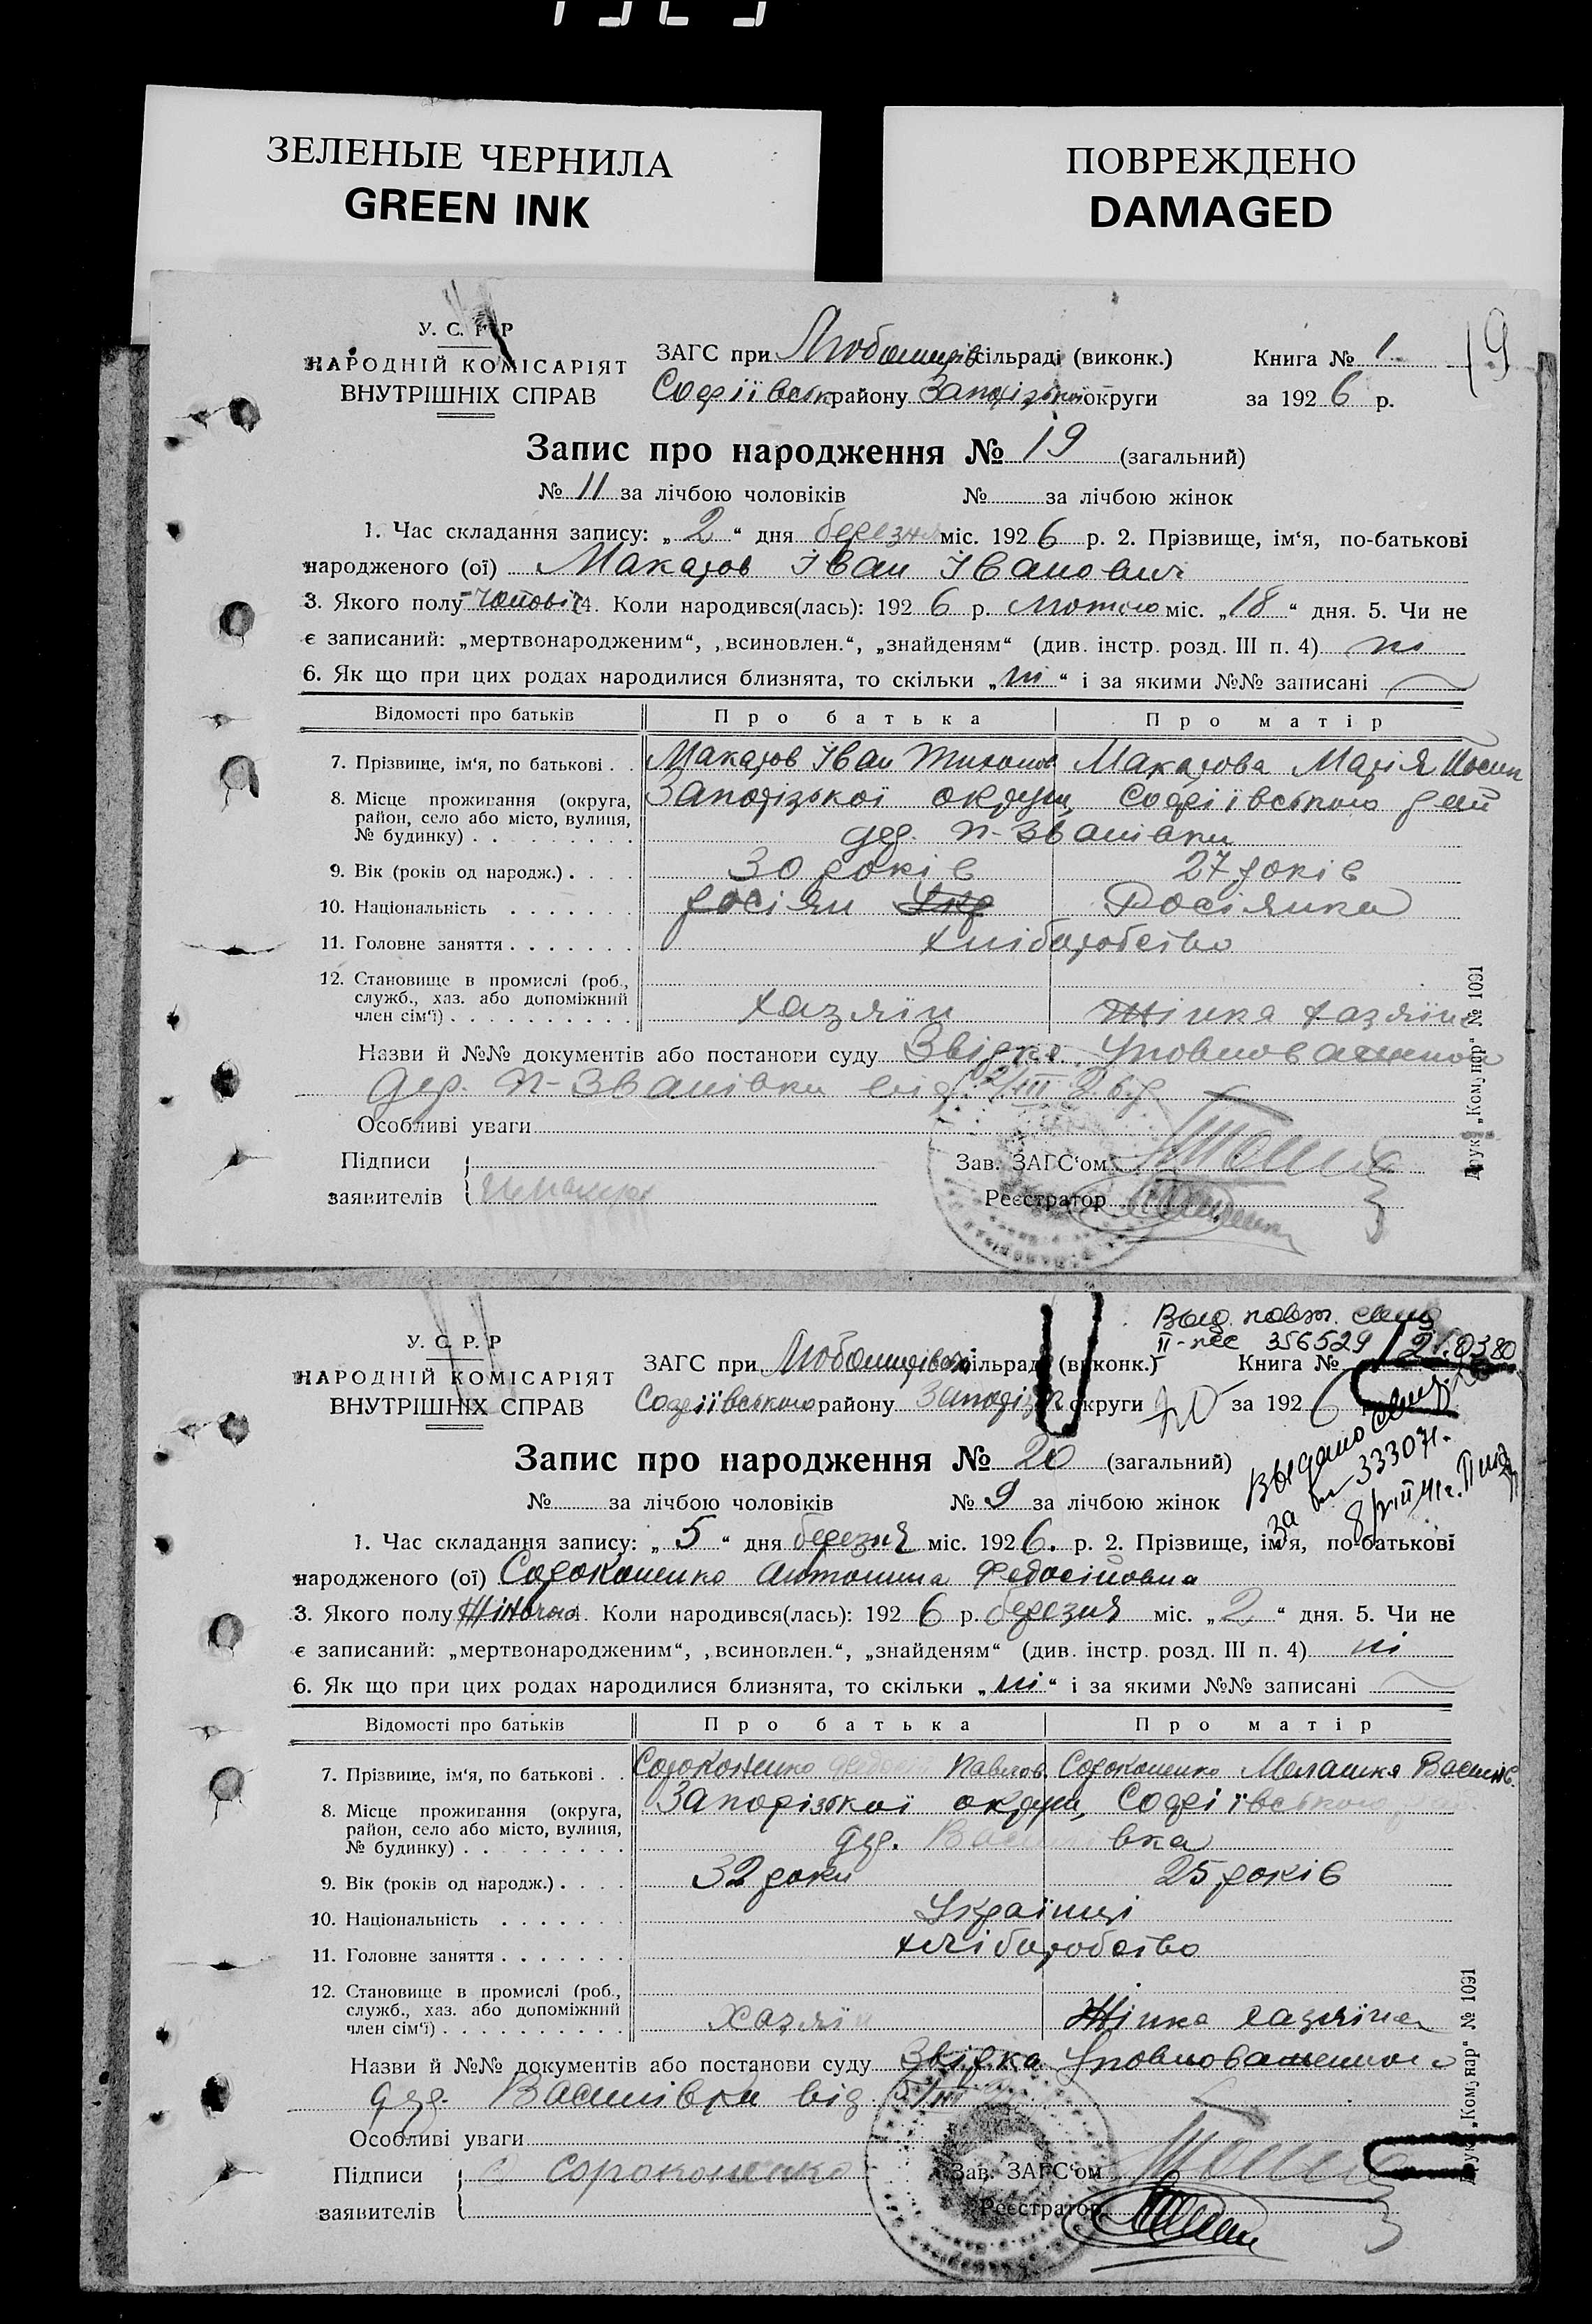 ЗЕЛЕНЫЕ ЧЕРНИЛА
GREEN INK
ПОВРЕЖДЕНО
DAMAGED
У. С. Р. Р
НАРОДНІЙ КОМІСАРІЯТ
ВНУТРІШНІХ СПРАВ
ЗАГС при Любомирів сільраді (виконк.)
Софіївськ району Запорізької округи
Книга № 1
за 1926 р.
19
Запис про народження № 19 (загальний)
№ 11 за лічбою чоловіків № за лічбою жінок
1. Час складання запису: „2“ дня березня міс. 1926 р. 2. Прізвище, ім‘я, по-батькові
народженого (ої) Макаров Іван Іванович
3. Якого полу чоловіч 4. Коли народився(лась): 1926 р. лютого міс. „18“ дня. 5. Чи не
є записаний: „мертвонародженим“, „всиновлен.“, „знайденям“ (див. інстр. розд. III п. 4) ні
6. Як що при цих родах народилися близнята, то скільки „ні“ і за якими №№ записані
Відомості про батьків Про батька Про матір
7. Прізвище, ім‘я, по батькові . . Макаров Іван Тихонов Макарова Марія Йосип
8. Місце проживання (округа, район, село або місто, вулиця, № будинку) . . . . . . . . . Запорізької округи, Софіївського рай
дер. П-Званівки
9. Вік (років од народж.) . . . . 30 років 27 років
10. Національність . . . . . . . росіян Укр Росіянка
11. Головне заняття . . . . . . . хліборобство
12. Становище в промислі (роб., служб., хаз. або допоміжний член сім‘ї) . . . . . . . . . . хазяїн Жінка хазяїна
Назви й №№ документів або постанови суду Звідка Уповноваженого
дер. П-Званівки від 2/III 26 р
Особливі уваги
Підписи
заявителів
Зав. ЗАГС‘ом
Реєстратор
Друк. „Комунар“ № 1091
Выд. повт. свид
II-псс 356529
У. С. Р. Р
НАРОДНІЙ КОМІСАРІЯТ
ВНУТРІШНІХ СПРАВ
ЗАГС при Любомирівськ сільраді (виконк.)
Софіївського району Запоріз округи
Книга №
20 за 1926
Выдано свид
за № 333071.
Запис про народження № 20 (загальний)
№ за лічбою чоловіків № 9 за лічбою жінок
1. Час складання запису: „5“ дня березня міс. 1926. р. 2. Прізвище, ім‘я, по-батькові
народженого (ої) Сорокопенко Антонина Федосіповна
3. Якого полу Жіноча 4. Коли народився(лась): 1926 р. березня міс. „2“ дня. 5. Чи не
є записаний: „мертвонародженим“, „всиновлен.“, „знайденям“ (див. інстр. розд. III п. 4) ні
6. Як що при цих родах народилися близнята, то скільки „ні“ і за якими №№ записані
Відомості про батьків Про батька Про матір
7. Прізвище, ім‘я, по батькові . . Сорокопенко Федос Павлов. Сорокопенко Мелашка Василів.
8. Місце проживання (округа, район, село або місто, вулиця, № будинку) . . . . . . . . . Запорізької округи, Софіївського рай.
дер. Василівка
9. Вік (років од народж.) . . . . 32 роки 25 років
10. Національність . . . . . . . Українці
11. Головне заняття . . . . . . . хліборобство
12. Становище в промислі (роб., служб., хаз. або допоміжний член сім‘ї) . . . . . . . . . . хазяїн Жінка хазяїна
Назви й №№ документів або постанови суду Звідка Уповноваженого
дер. Василівки від 5/III
Особливі уваги
Підписи
заявителів
Сорокопенко
Зав. ЗАГС‘ом
Реєстратор
Друк. „Комунар“ № 1091